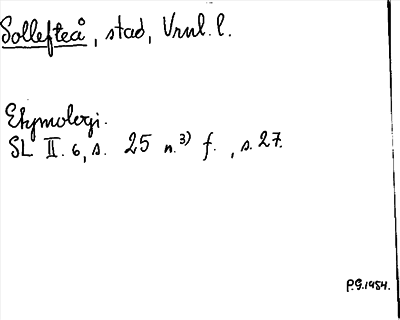 Sollefteå, stad, Vrnl. l.
Etymologi.
SL II. 6, s. 25 n. 3) f., s. 27.
P.G. 1954.